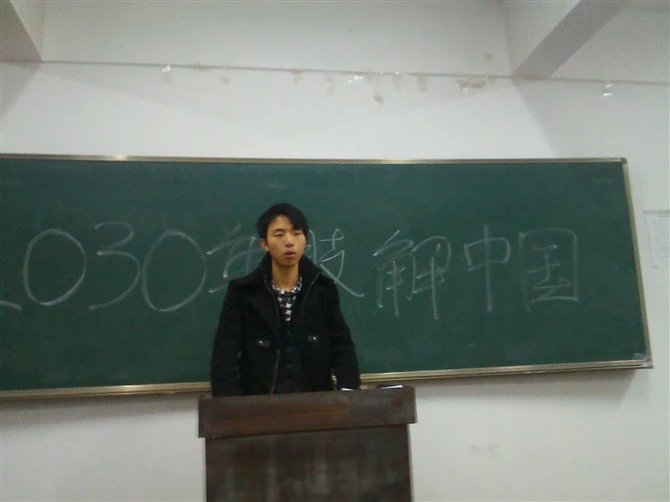 2030年肢解中国